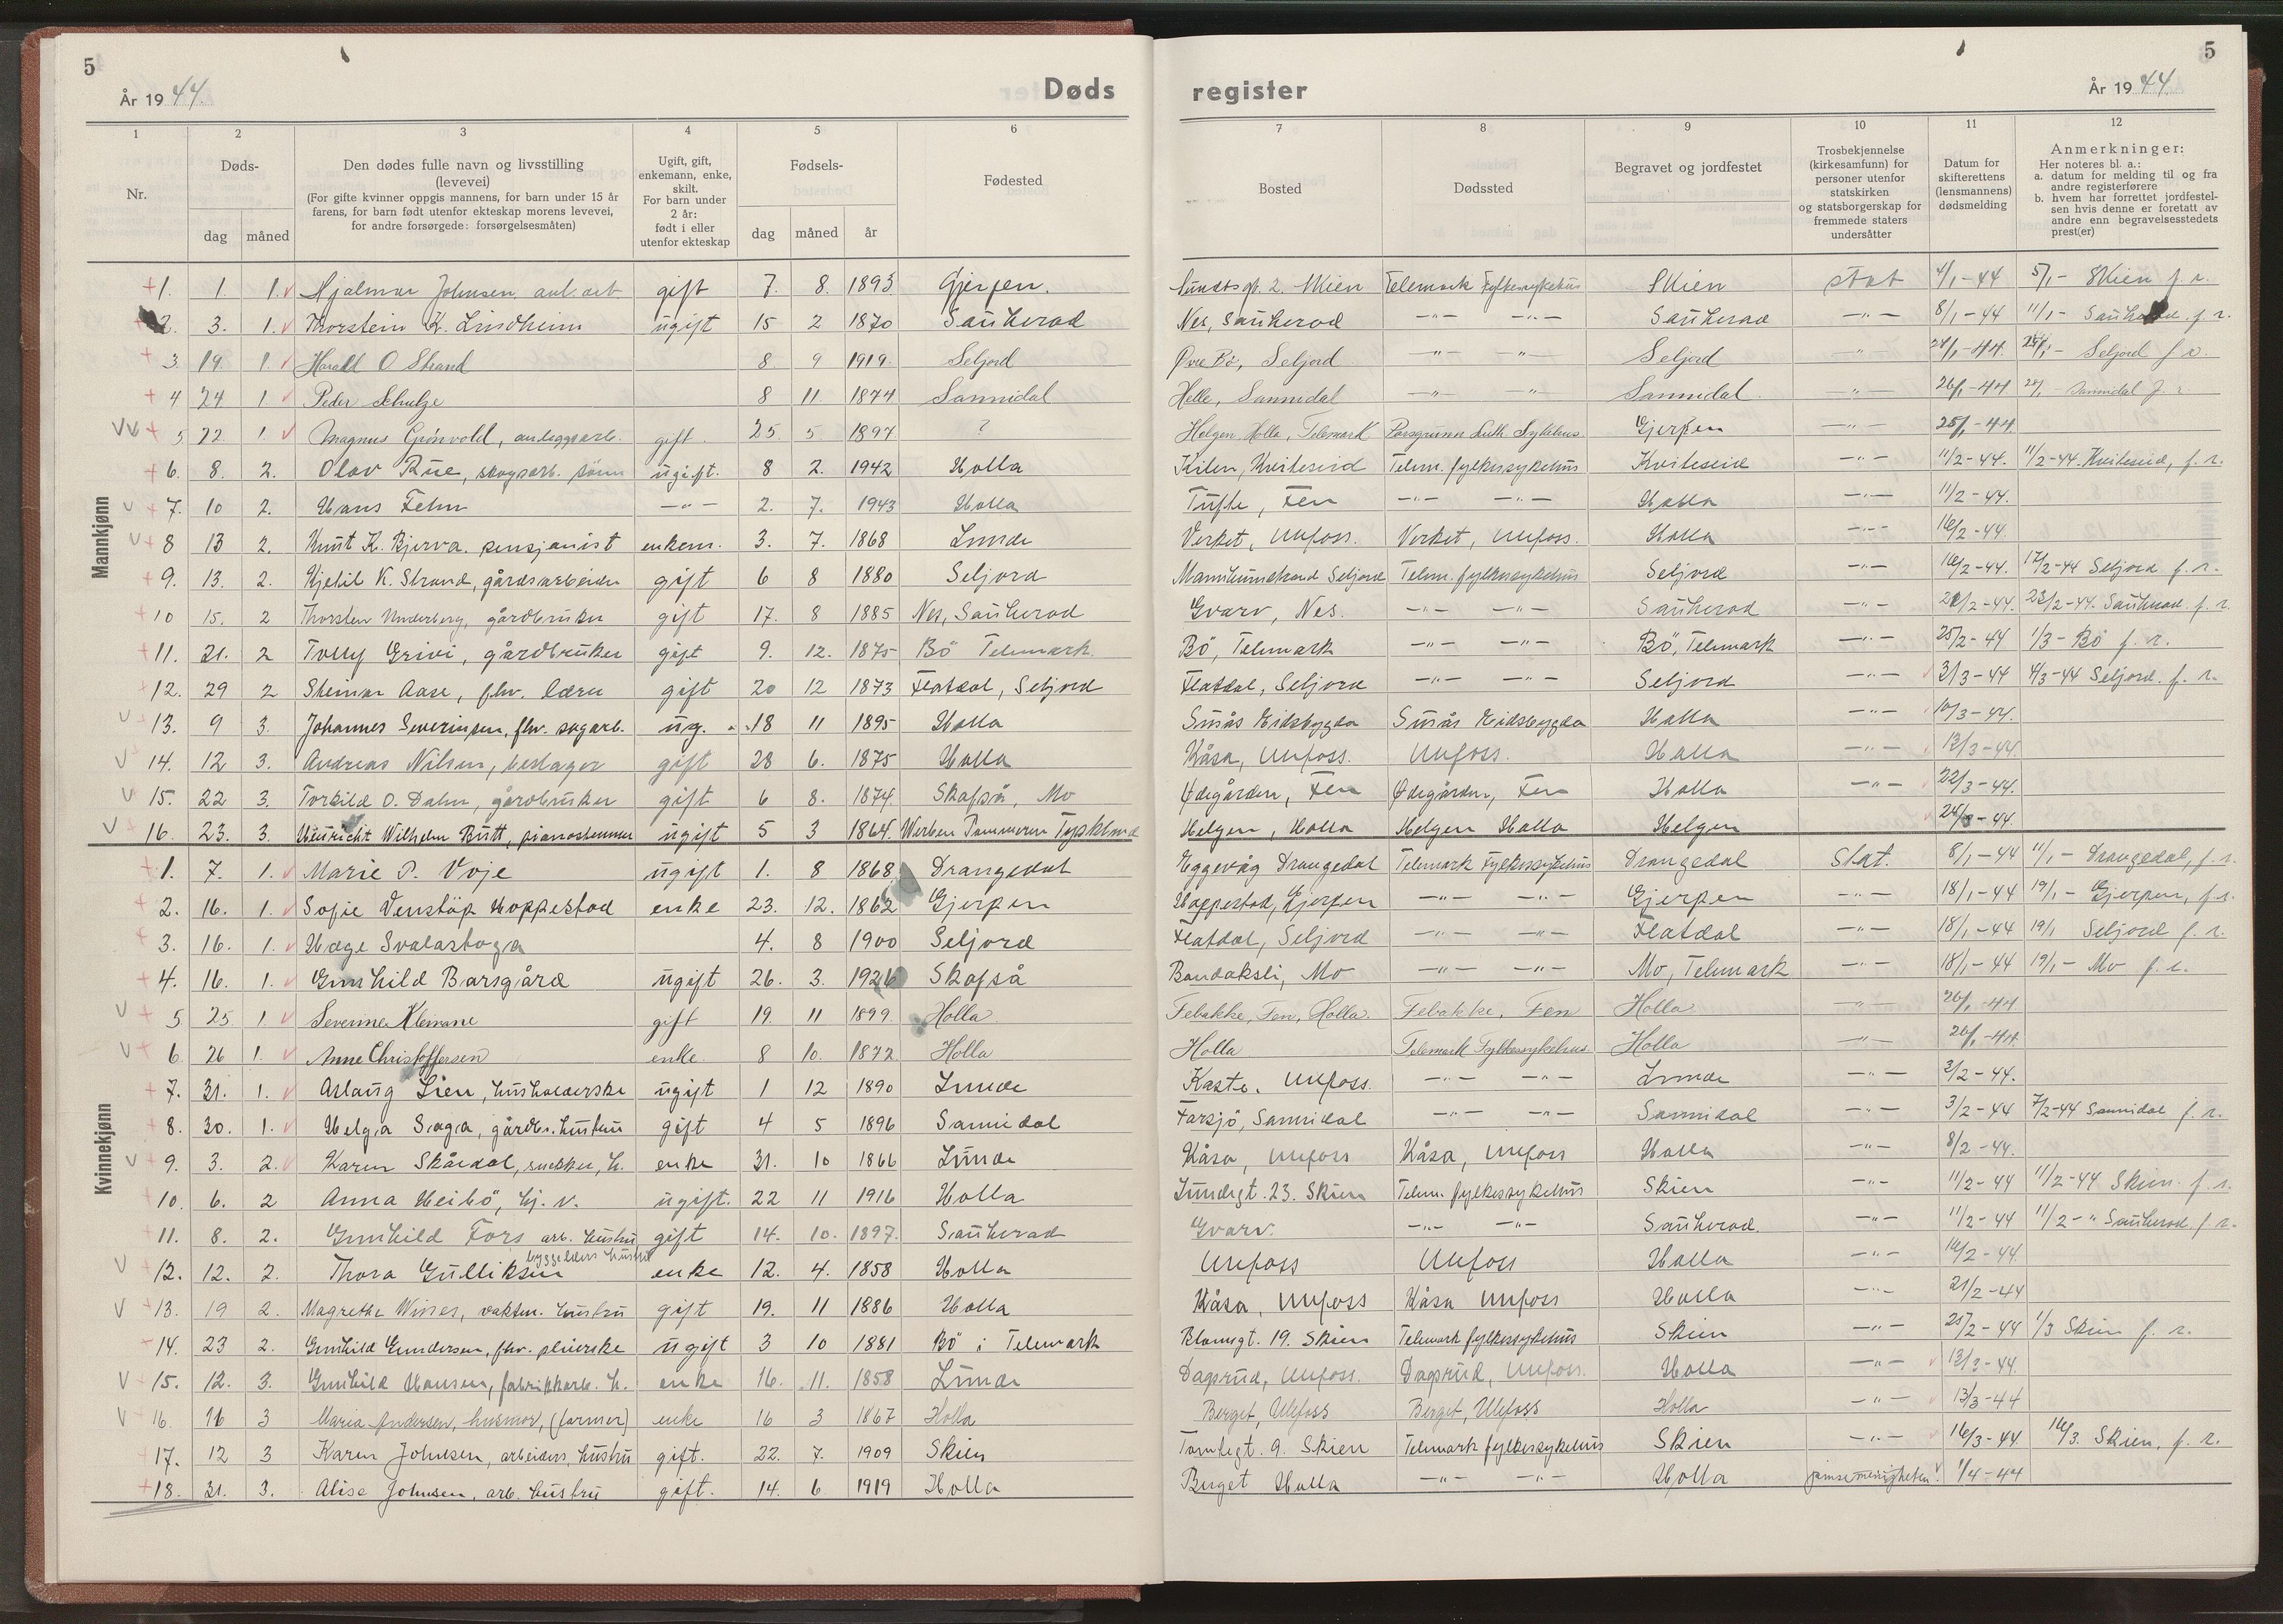 5
År 1944.
Døds
register
År 1944.
5
1 2 3 4 5 6 7 8 9 10 11 12
Nr.
Døds-
dag måned
Den dødes fulle navn og livsstilling
(levevei)
(For gifte kvinner oppgis mannens, for barn under 15 år
farens, for barn født utenfor ekteskap morens levevei,
for andre forsørgede: forsørgelsesmåten)
Ugift, gift,
enkemann, enke,
skilt.
For barn under
2 år:
født i eller
utenfor ekteskap
Fødsels-
dag måned år
Fødested
Bosted
Dødssted
Begravet og jordfestet
Trosbekjennelse
(kirkesamfunn) for
personer utenfor
statskirken
og statsborgerskap for
fremmede staters
undersåtter
Datum for
skifterettens
(lensmannens)
dødsmelding
Anmerkninger:
Her noteres bl. a.:
a. datum for melding til og fra
andre registerførere
b. hvem har forrettet jordfestel-
sen hvis denne er foretatt av
andre enn begravelsesstedets
prest(er)
Mannkjønn
+1. 1. 1. Hjalmar Johnsen, anl. arb. gift 7. 8. 1893 Gjerpen. gt. 2. Skien Telemark Fylkessykehus Skien stat 4/1-44 5/1- Skien f. r.
2. 3. 1. Thorstein K. Lindheim ugift 15 2 1870 Sauherad Nes, Sauherad -"- -"- Sauherad -"- 8/1-44 11/1- Sauherad. f. r.
+ 3 19. 1. Harald O Strand 8 9 1919. Seljord Øvre Bø, Seljord -"- -"- Seljord -"- -44. Seljord f r.
+ 4 24 1 Peder Schulze 8 11 1874 Sannidal Helle, Sannidal -"- -"- Sannidal -"- 26/1-44 Sannidal f. r.
+ 5 22. 1. Magnus Grönvold, anleggsarb. gift. 25. 5 1897 ? Helgen, Holla, Telemark Porsgrunn Luth. Sykehus. Gjerpen -"- 25/1-44.
+6. 8. 2. Olav Rue, skogsarb. sønn ugift. 8 2. 1942 Holla Kilen, Kviteseid Telem. fylkessykehus Kviteseid -"- 11/2-44. 11/2-44. Kviteseid, f. r.
V +7. 10 2. Hans Fehn -"- 2. 7. 1943 Holla Tufte, Fen -"- -"- Holla -"- 11/2-44.
V+ 8 13 2. Knut K. Bjerva. pensjonist enkem. 3. 7. 1868 Lunde Verket, Ulefoss. Verket, Ulefoss. Holla -"- 16/2-44.
+9. 13. 2. Kjetil K. Strand, gårdsarbeider gift 6 8 1880 Seljord Seljord Telem. fylkessykehus Seljord -"- 16/2-44. 17/2-44 Seljord f. r.
+10 15. 2 Thorsten Underberg, gårdbruker gift 17. 8 1885 Nes, Sauherad Gvarv, Nes. -"- -"- Sauherad -"- 21/2-44. 23/2-44. Sauherad. f. r.
+11. 21. 2 Tolly Grivi, gårdbruker gift 9. 12. 1875 Bö Telemark. Bö, Telemark -"- -"- Bö, Telemark -"- 25/2-44 1/3- Bö f. r.
12. 29 2 Steinar Aase, fhv. lærer gift 20 12 1873 Flatdal, Seljord Flatdal, Seljord -"- -"- Seljord -"- 3/3-44 4/3-44 Seljord. f. r.
V 13. 9 3. Johannes Severinsen, fhv. sagarb. ug. 18 11 1895 Holla Smås Eidsbygda Smås Eidsbygda Holla -"- 10/3-44.
V 14. 12 3. Andreas Nilsen, beslager gift 28 6. 1875 Holla Kåsa, Ulefoss. Ulefoss. Holla -"- 13/3-44.
V 15. 22 3. Torkild O. Dahn, gårdbruker gift 6 8. 1874. Skafså, Mo Ødegården, Fen Ødegården, Fen Holla -"- 22/3-44.
V 16. 23. 3. Heinricht Wilhelm Butt, pianostemmer ugift 5 3 1864. Werben Pommeren Tyskland Helgen, Holla Helgen Holla Helgen 24/3-44.
Kvinnekjønn
+1. 7. 1. Marie P. Voje ugift 1. 8 1868 Drangedal Eggevåg Drangedal Telemark Fylkessykehus Drangedal Stat. 8/1-44 11/1- Drangedal, f. r.
+ 2. 16. 1. Sofie Venstöp Hoppestad enke 23. 12. 1862 Gjerpen Hoppestad, Gjerpen -"- -"- Gjerpen -"- 18/1-44 19/1- Gjerpen, f. r.
+ 3. 16. 1. Hæge Svalastoga 4. 8 1900 Seljord Flatdal, Seljord -"- -"- Flatdal -"- 18/1-44 19/1 Seljord f. r.
+4. 16. 1. Gunhild Barsgård ugift 26. 3. 1926 Skafså Bandaksli, Mo -"- -"- Mo, Telemark -"- 18/1-44 19/1- Mo f. r.
V + 5 25 1. Severine Kleivane gift 19. 11 1899. Holla Febakke, Fen, Holla Febakke, Fen Holla -"- 26/1-44
V+ 6. 26 1. Anne Christoffersen enke. 8 10. 1872. Holla Holla Telemark Fylkessykehus Holla -"- 26/1-44.
+7. 31. 1. Aslaug Lien, husholderske ugift 1 12 1890 Lunde Kaste. Ulefoss. -"- -"- Lunde -"- 2/2-44.
+8. 30. 1. Helga Saga, gårdbr. hustru gift 4 5 1896 Sannidal Farsjö, Sannidal -"- -"- Sannidal -"- 3/2-44 7/2-44 Sannidal f. r.
V +9. 3. 2. Karen Skårdal, snekker, h. enke 31. 10 1866 Lunde Kåsa, Ulefoss Kåsa, Ulefoss Holla -"- 8/2-44.
+10. 6. 2 Anna Heibö, hj. v. ugift. 22 11 1916 Holla Lundegt. 23. Skien Telem. fylkessykehus Skien -"- 11/2-44 11/2-44 Skien. f. r.
+11. 8. 2. Gunhild Fors arb. hustru gift 14. 10. 1897. Sauherad Gvarv. -"- -"- Sauherad -"- 11/2-44 11/2-" Sauherad. f r.
byggeleders hustru
V +12. 12. 2. Thora Gulliksen enke 12. 4. 1858 Holla Ulefoss Ulefoss Holla -"- 16/2-44.
V +13. 19 2. Magrethe Winnes, vaktm. hustru gift 19. 11 1886 Holla Kåsa, Ulefoss Kåsa Ulefoss Holla -"- 21/2-44
+14. 23 2. Gunhild Gundersen, fhv. pleierske ugift 3 10 1881 Bö i Telemark Blomsgt. 19. Skien Telemark fylkessykehus Skien -"- 25/2-44 1/3 Skien f. r.
V +15. 12. 3. Gunhild Hansen, fabrikkarb. h. enke 16. 11. 1858 Lunde Dagsrud, Ulefoss. Dagsrud, Ulefoss. Holla -"- 13/3-44.
V 16. 11 3 Maria Andersen, husmor, (farmor) enke 16 3 1867 Holla Berget, Ulefoss Berget, Ulefoss Holla -"- 13/3-44
+17. 12 3 Karen Johnsen, arbeiders hustru gift. 22. 7. 1909 Skien Tomtegt. 9. Skien Telemark fylkessykehus Skien -"- 16/3-44. 16/3. Skien, f. r.
+18. 31. 3. Alise Johnsen, arb. hustru gift. 14. 6 1919 Holla Berget Holla -"- -"- Holla pinsemenigheten. 1/4-44